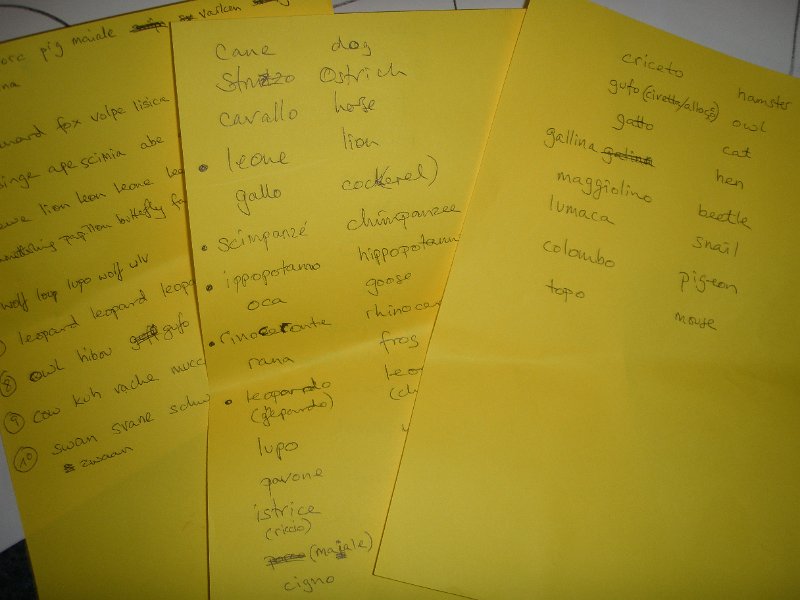 pig maiale varken
na
fox volpe lisica
ape scimia abe
lion leon leone
papillon butterfly
wolf loup lupo wolf wlv
leopard leopard leopa
8 owl hibou gufo
9 cow kuh vache mucc
10 swan svane schw
zwaan
cane dog
Struzzo Ostrich
cavallo horse
• leone lion
gallo cockerel)
• scimpanzé chimpanzee
• ippopotamo hippopotam
oca goose
• rinoceronte rhinocer
rana frog
• leopardo leo
(ghepardo) (ch
lupo
pavone
istrice
(riccio)
(maiale)
cigno
criceto hamster
gufo (civetta/allocco) owl
gatto cat
gallina hen
maggiolino beetle
lumaca snail
colombo pigeon
topo mouse